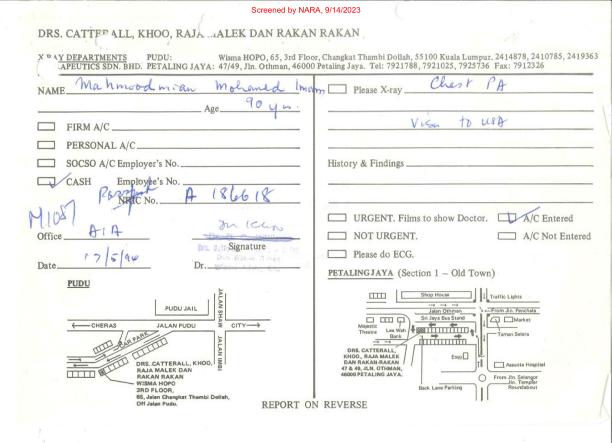 Screened by NARA, 9/14/2023
DRS. CATTERALL, KHOO, RAJA MALEK DAN RAKAN RAKAN
X RAY DEPARTMENTS PUDU: Wisma HOPO, 65, 3rd Floor, Changkat Thambi Dollah, 55100 Kuala Lumpur, 2414878, 2410785, 2419363
APEUTICS SDN. BHD. PETALING JAYA: 47/49, Jln. Othman, 46000 Petaling Jaya. Tel: 7921788, 7921025, 7925736 Fax: 7912326
NAME Mahmoodmian Mohamed Imam
Age 90 yrs.
FIRM A/C
PERSONAL A/C
SOCSO A/C Employer's No.
CASH Employee's No.
Passport NRIC No. A 186618
M1087
Office AIA
Signature
Date 17/5/96 Dr.
Please X-ray Chest PA
Visa to USA
History & Findings
URGENT. Films to show Doctor. A/C Entered
NOT URGENT. A/C Not Entered
Please do ECG.
PUDU
PUDU JAIL
JALAN SHAW
CHERAS JALAN PUDU CITY
CAR PARK
JALAN IMBI
DRS. CATTERALL, KHOO,
RAJA MALEK DAN
RAKAN RAKAN
WISMA HOPO
3RD FLOOR,
65, Jalan Changkat Thambi Dollah,
Off Jalan Pudu.
PETALING JAYA (Section 1 – Old Town)
Shop House
Traffic Lights
Jalan Othman
From Jln. Penchala
Majestic Theatre
Lee Wah Bank
Sri Jaya Bus Stand
Market
Taman Selera
DRS. CATTERALL,
KHOO, RAJA MALEK
DAN RAKAN-RAKAN
47 & 49, JLN. OTHMAN,
46000 PETALING JAYA.
Esso
Assunta Hospital
Back Lane Parking
From Jln. Selangor
Jln. Templer
Roundabout
REPORT ON REVERSE